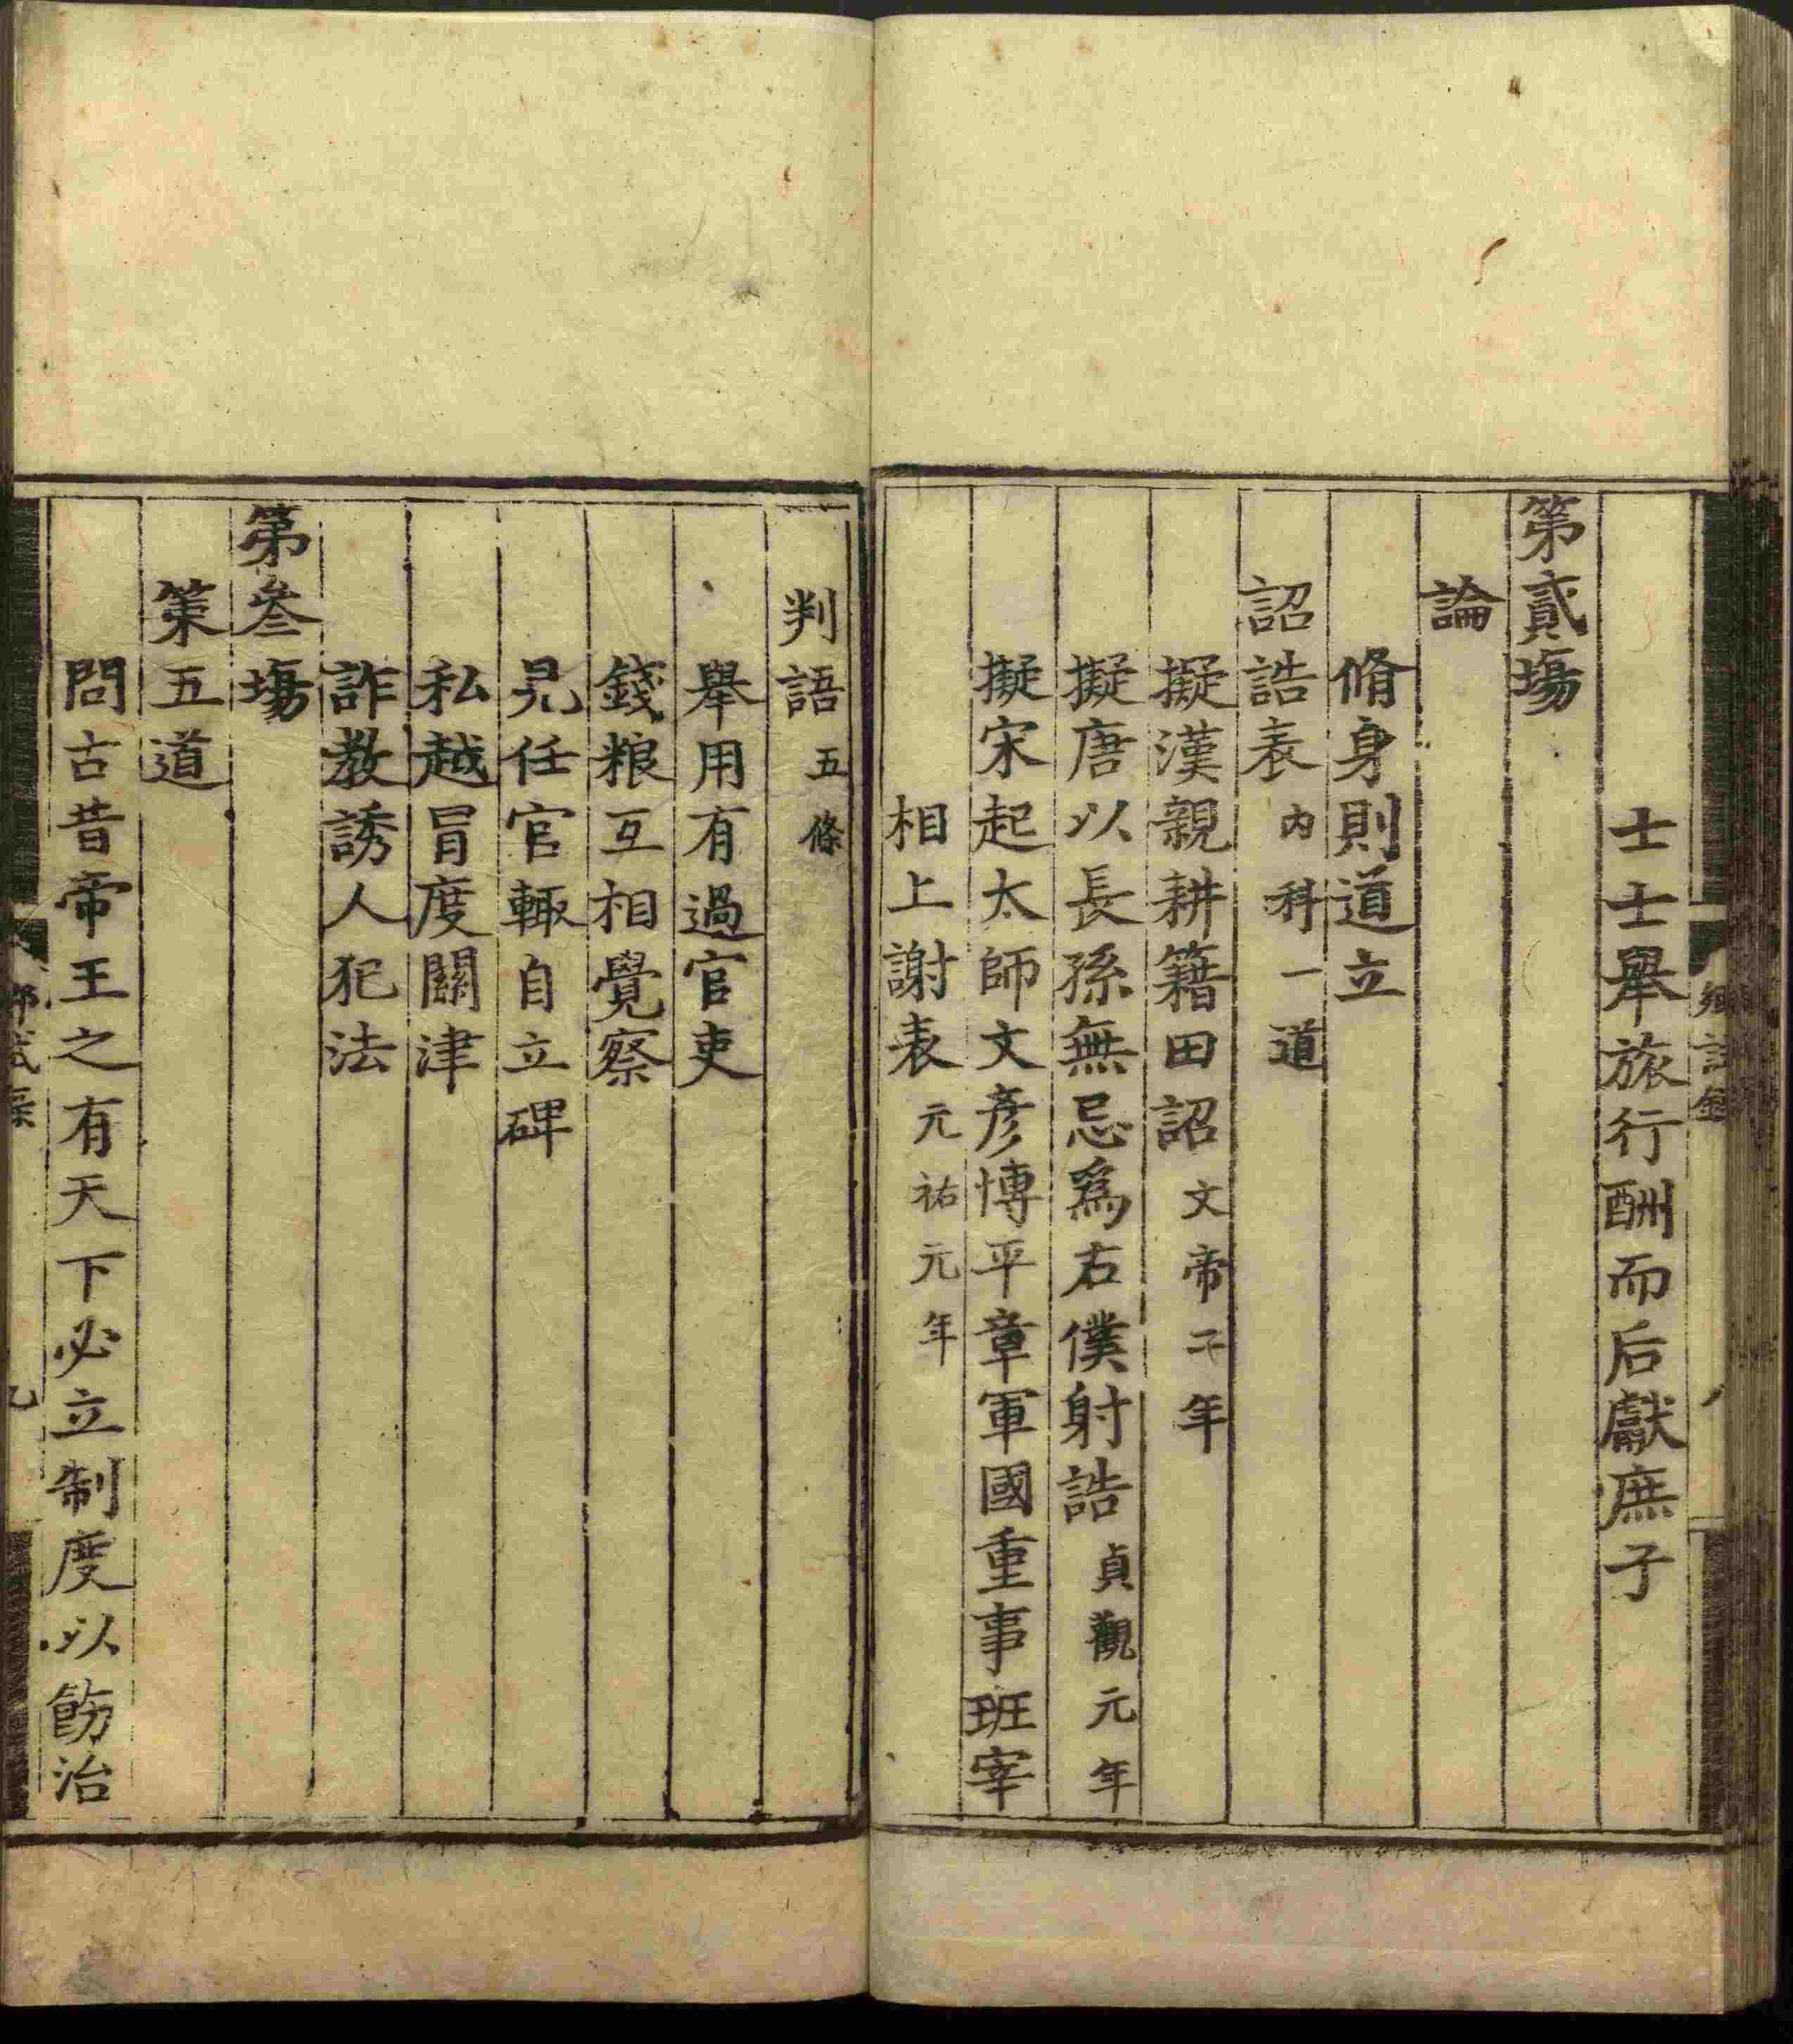 士士舉旅行酬而后獻庶子
第貳塲
論
脩身則道立
詔誥表內科一道
擬漢親耕籍田詔文帝二年
擬唐以長孫無忌爲右僕射誥貞觀元年
擬宋起太師文彥博平章軍國重事班宰
相上謝表元祐元年
判語五條
舉用有過官吏
錢粮互相覺察
見任官輙自立碑
私越冒度關津
詐教誘人犯法
第叄塲
策五道
問古昔帝王之有天下必立制度以飭治